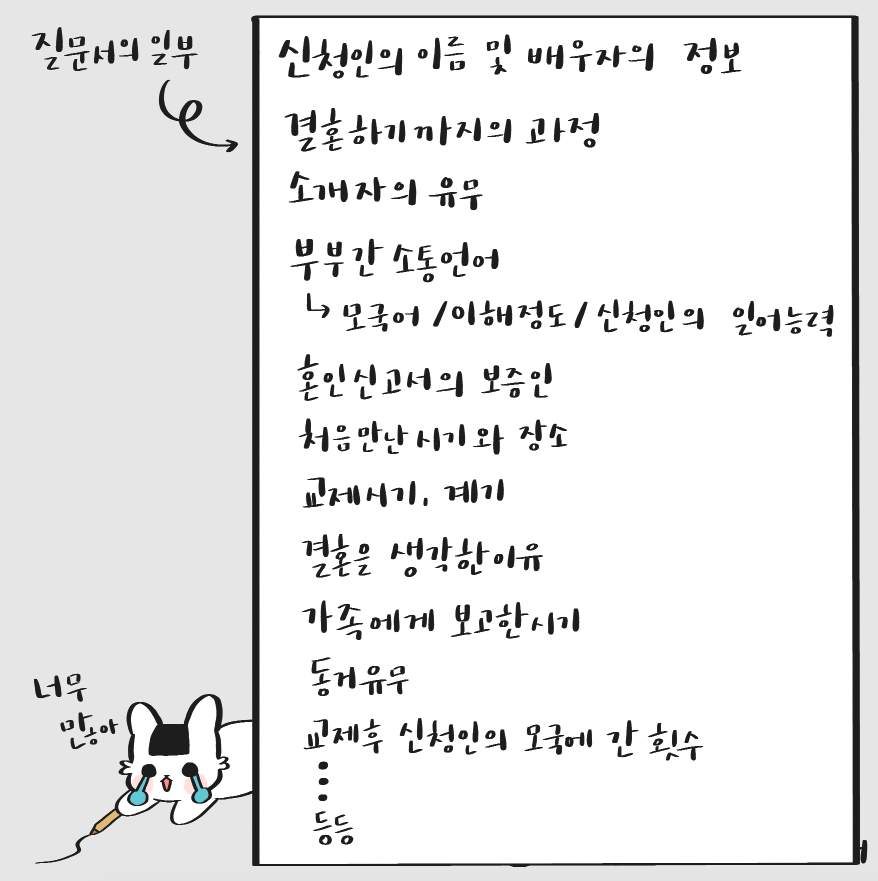 질문서의 일부
신청인의 이름 및 배우자의 정보
결혼하기까지의 과정
소개자의 유무
부부간 소통언어
↳ 모국어 /이해정도/ 신청인의 일어능력
혼인신고서의 보증인
처음만난시기와 장소
교제시기, 계기
결혼을 생각한이유
가족에게 보고한시기
동거유무
교제후 신청인의 모국에 간 횟수
등등
너무
만ㅎ아